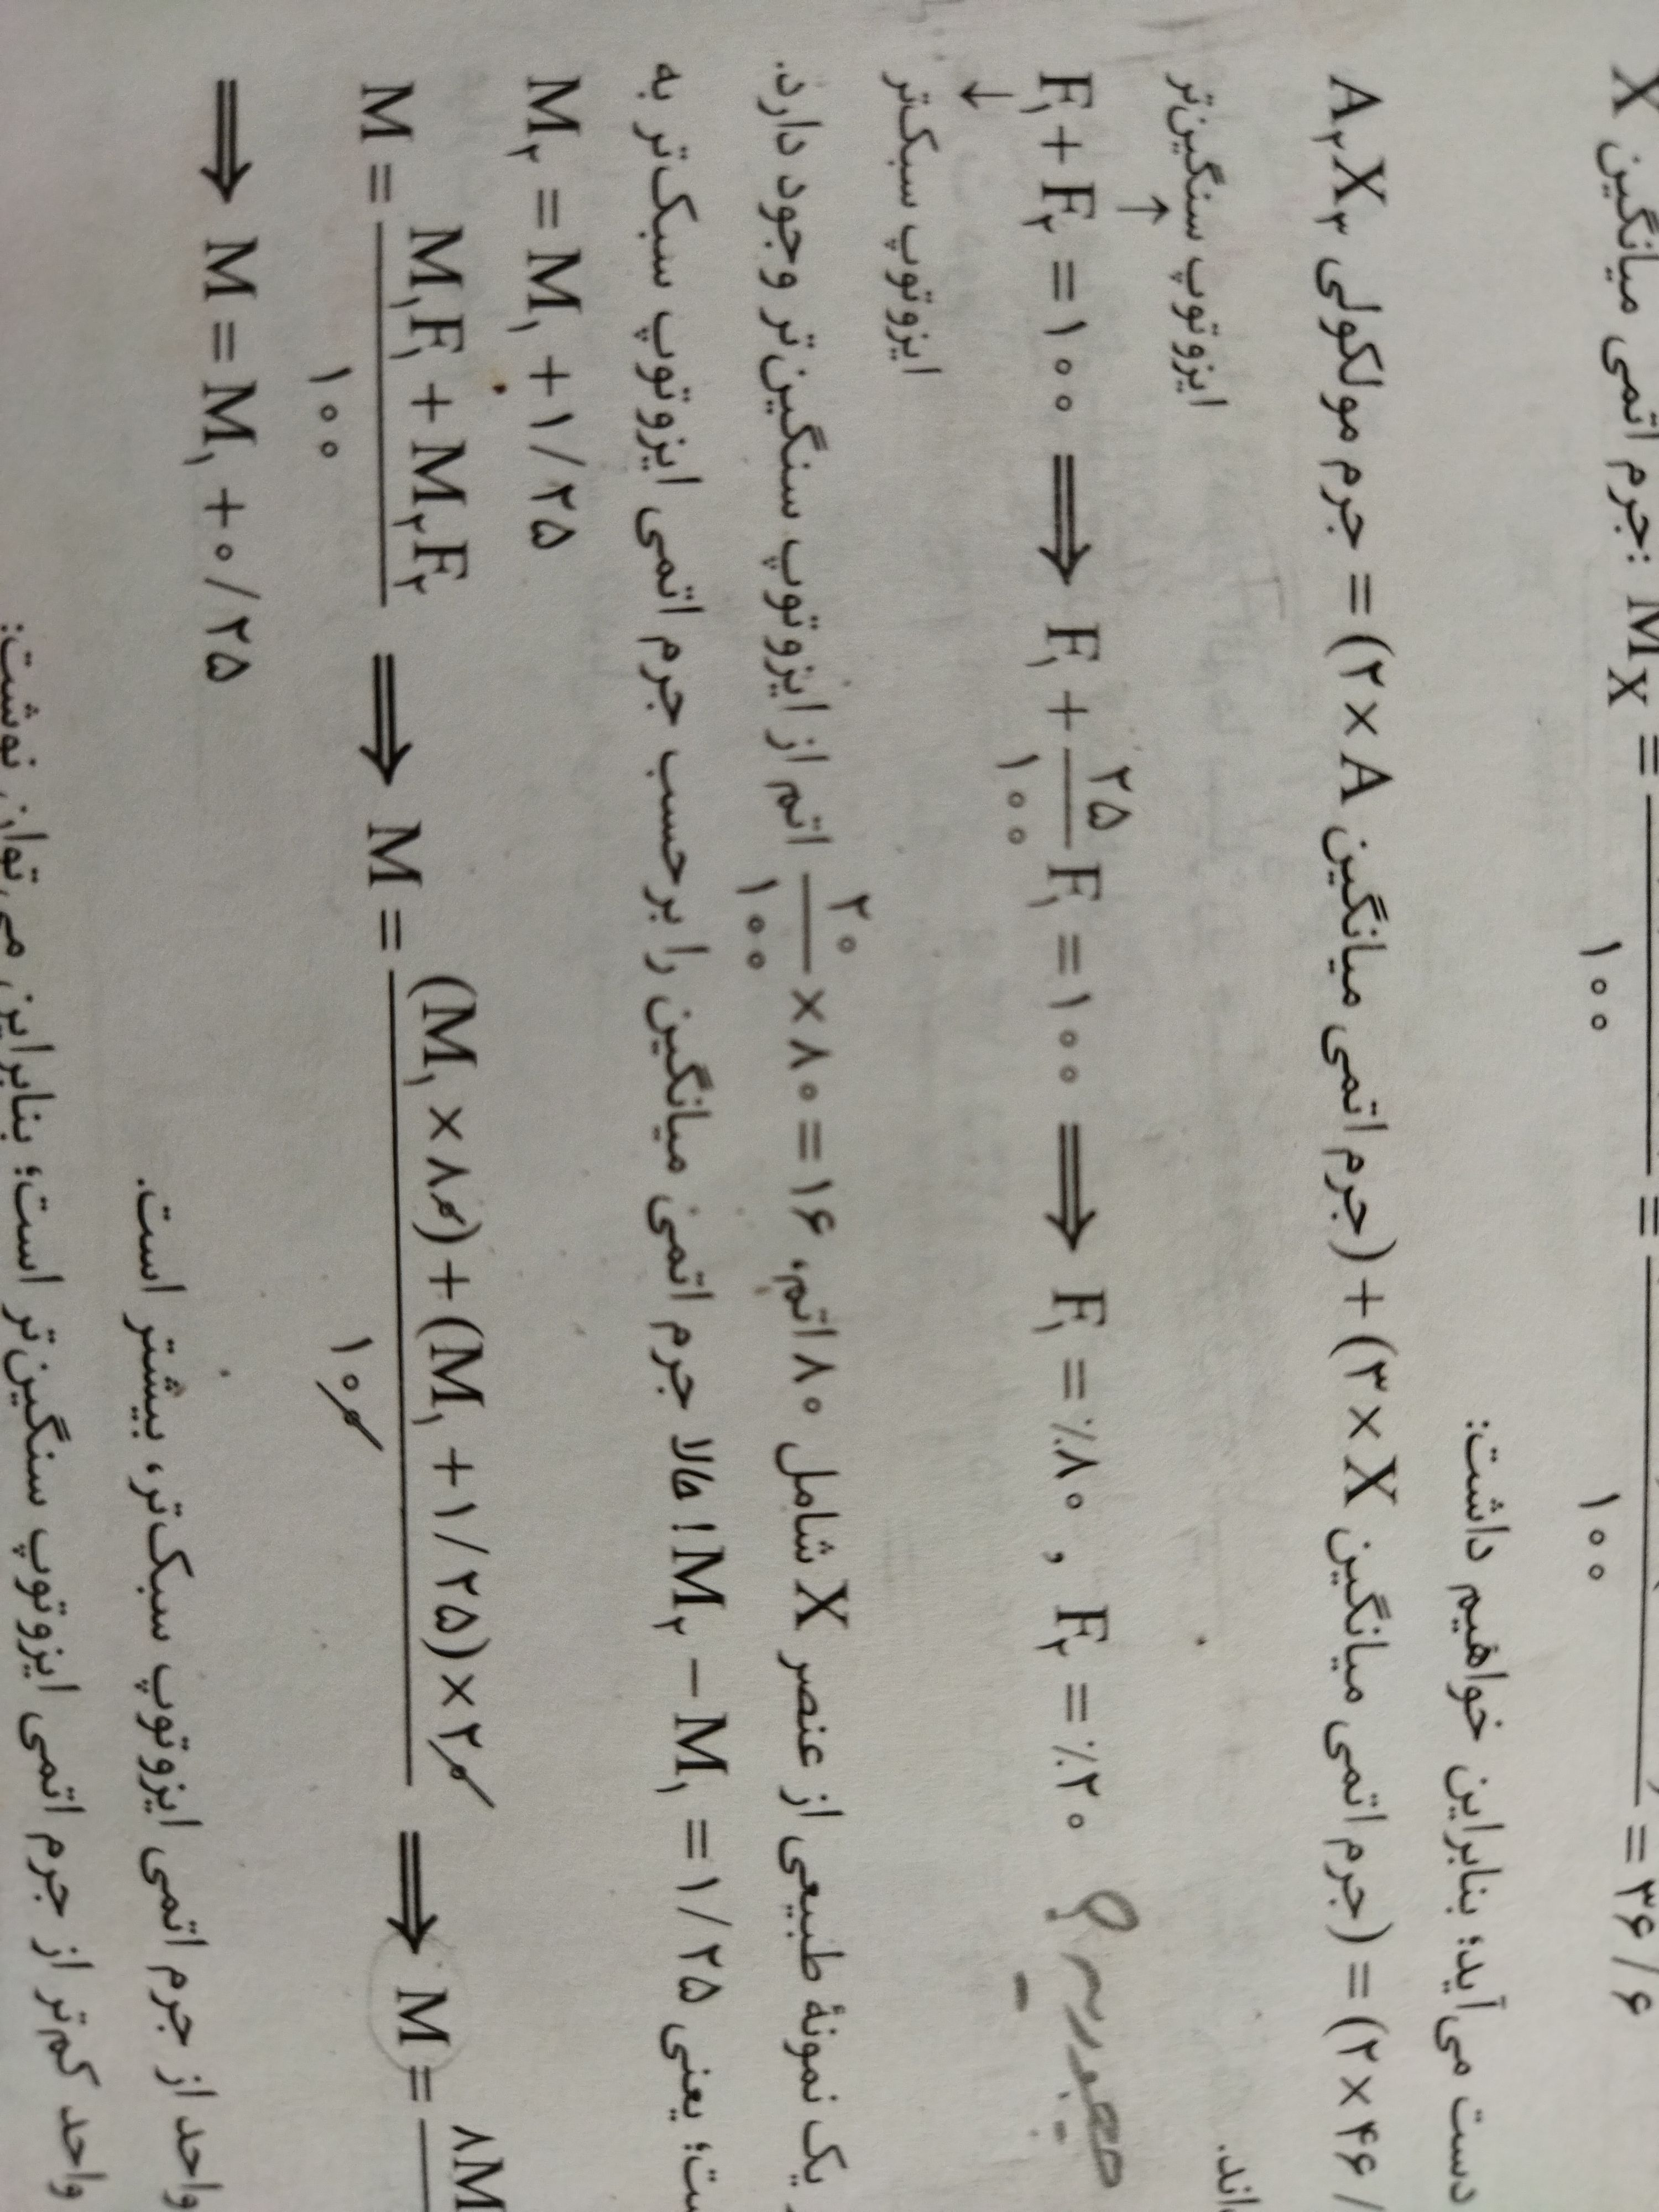 جرم اتمی میانگین X : M_X = ــــ/۱۰۰ = ــــ/۱۰۰ = ۳۶/۶
دست می‌آید؛ بنابراین خواهیم داشت:
A۲X۳ جرم مولکولی = (۲×A جرم اتمی میانگین) + (۳×X جرم اتمی میانگین) = (۲×۴۶/
ایزوتوپ سنگین‌تر
↑
F۱ + F۲ = ۱۰۰ ⟹ F۱ + ۲۵/۱۰۰ F۱ = ۱۰۰ ⟹ F۱ = ٪۸۰ , F۲ = ٪۲۰
↓
ایزوتوپ سبک‌تر
یک نمونهٔ طبیعی از عنصر X شامل ۸۰ اتم، ۱۶ = ۸۰ × ۲۰/۱۰۰ اتم از ایزوتوپ سنگین‌تر وجود دارد.
ست؛ یعنی M۲ − M۱ = ۱/۲۵! حالا جرم اتمی میانگین را برحسب جرم اتمی ایزوتوپ سبک‌تر به
M۲ = M۱ + ۱/۲۵
M = (M۱F۱ + M۲F۲)/۱۰۰ ⟹ M = ((M۱ × ۸۰) + (M۱ + ۱/۲۵) × ۲۰)/۱۰۰ ⟹ M = ۸M
⟹ M = M۱ + ۰/۲۵
واحد از جرم اتمی ایزوتوپ سبک‌تر، بیشتر است.
واحد کم‌تر از جرم اتمی ایزوتوپ سنگین‌تر است؛ بنابراین می‌توان نوشت: